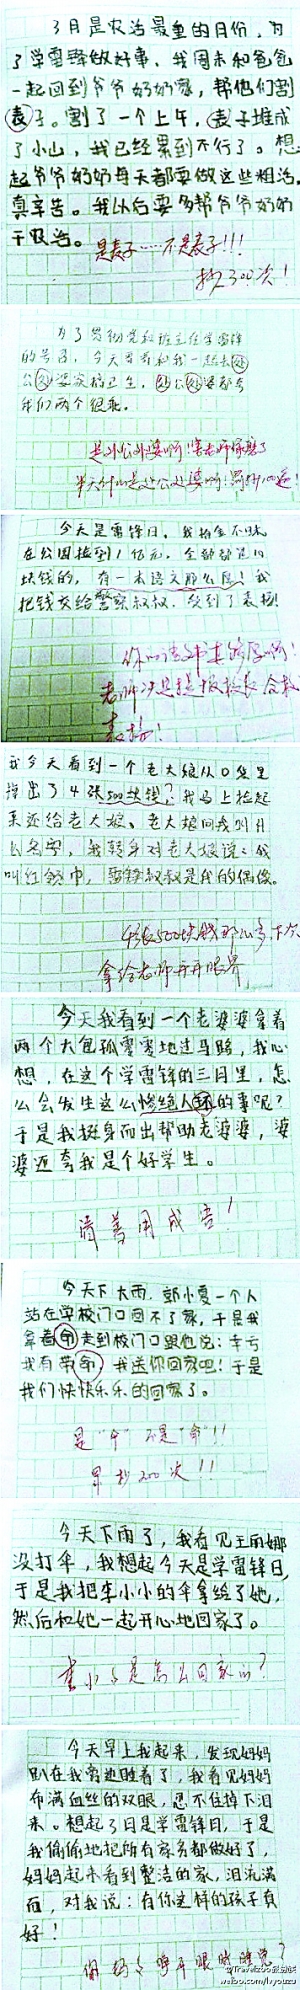 3月是农活最重的日份，为
了学雷锋做好事，我周末和爸爸
一起回到爷爷奶奶家，帮他们割
表子。割了一个上午，表子堆成
了小山，我已经累到不行了。想
起爷爷奶奶每天都要做这些粗活，
真辛苦。我以后要多帮爷爷奶奶
干农活。
是麦子……不是表子!!!
抄300次!
为了
的号召，今天哥哥和我一起去处
公处婆家搞卫生，处公处婆都夸
我们两个很乖。
是外公外婆啊!害老师
半天 是处公处婆啊!罚抄100遍!
今天是雷锋日，我拾金不昧
在公园捡到1亿元，全部都是10
块钱的，有一本语文那么厚!我
把钱交给警察叔叔，受到了表扬!
你的语文书真够厚啊!
老师决定 报校长
表扬!
我今天看到一个老大娘从口袋里
掉出了4张500块钱?我马上捡起
来还给老大娘。老大娘问我叫什
么名字，我转身对老大娘说：我
叫红领巾，雷锋叔叔是我的偶像。
4张500块钱那么多，下次
拿给老师开开眼界
今天我看到一个老婆婆拿着
两个大包孤零零地过马路，我心
想，在这个学雷锋的三月里，怎
么会发生这么惨绝人环的事呢?
于是我挺身而出帮助老婆婆，婆
婆还夸我是个好学生。
请善用成语!
今天下大雨，郭小夏一个人
站在学校门口回不了家，于是我
拿着命走到校门口跟他说：幸亏
我有带命，我送你回家吧!于是
我们快快乐乐的回家了。
是"伞"不是"命"!!
罚抄200次!!
今天下雨了，我看见王雨娜
没打伞，我想起今天是学雷锋日，
于是我把李小小的伞拿给了她，
然后和她一起开心地回家了。
李小小是怎么回家的?
今天早上我起来，发现妈妈
趴在我旁边睡着了，我看见妈妈
布满血丝的双眼，忍不住掉下泪
来。想起3日是学雷锋日，于是
我偷偷地把所有家务都做好了，
妈妈起来看到整洁的家，泪流满
面，对我说：有你这样的孩子真
好!
你妈妈睁开眼睛睡觉?
@Travelzoo旅游族
weibo.com/lvyouzu